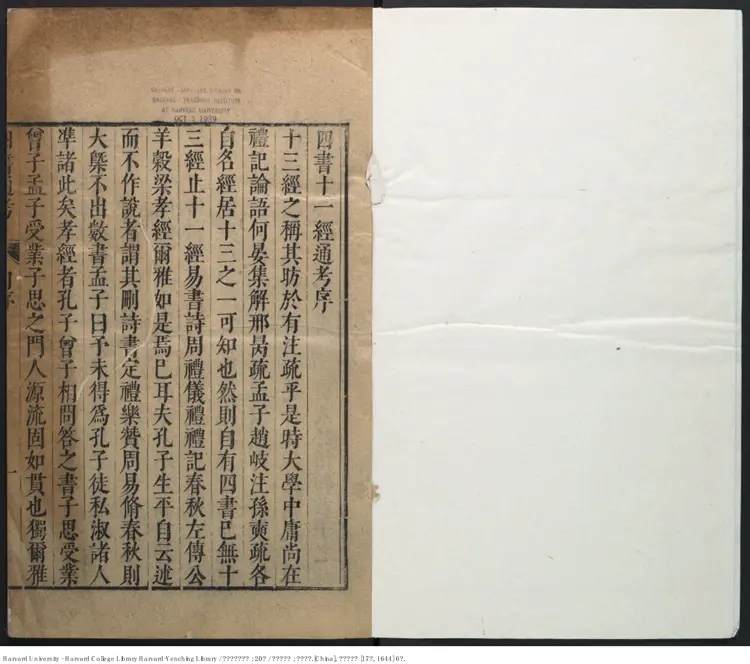 四書十一經通考序
十三經之稱其昉於有注疏乎是時大學中庸尚在
禮記論語何晏集解邢昺疏孟子趙岐注孫奭疏各
自名經居十三之一可知也然則自有四書巳無十
三經止十一經易書詩周禮儀禮禮記春秋左傳公
羊穀梁孝經爾雅如是焉巳耳夫孔子生平自云述
而不作說者謂其刪詩書定禮樂贊周易脩春秋則
大槩不出數書孟子曰予未得爲孔子徒私淑諸人
準諸此矣孝經者孔子曾子相問答之書子思受業
曾子孟子受業子思之門人源流固如貫也獨爾雅
一
CHINESE - JAPANESE LIBRARY OF
HARVARD - YENCHING INSTITUTE
AT HARVARD UNIVERSITY
OCT 1939
Harvard University - Harvard College Library Harvard-Yenching Library / ??????? : 20? / ????? ; ????. [China], ????? [17?, 1644] 6?.